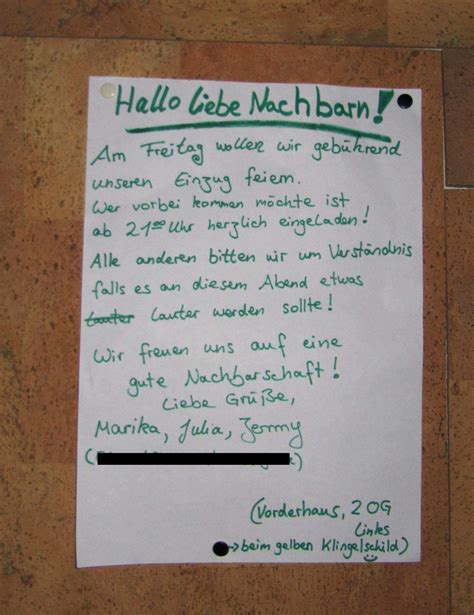 Hallo liebe Nachbarn!
Am Freitag wollen wir gebührend
unseren Einzug feiern.
Wer vorbei kommen möchte ist
ab 21⁰⁰ Uhr herzlich eingeladen!
Alle anderen bitten wir um Verständnis
falls es an diesem Abend etwas
lauter lauter werden sollte!
Wir freuen uns auf eine
gute Nachbarschaft!
Liebe Grüße,
Marika, Julia, Jemmy
(Vorderhaus, 2 OG
Links
→ beim gelben Klingelschild)